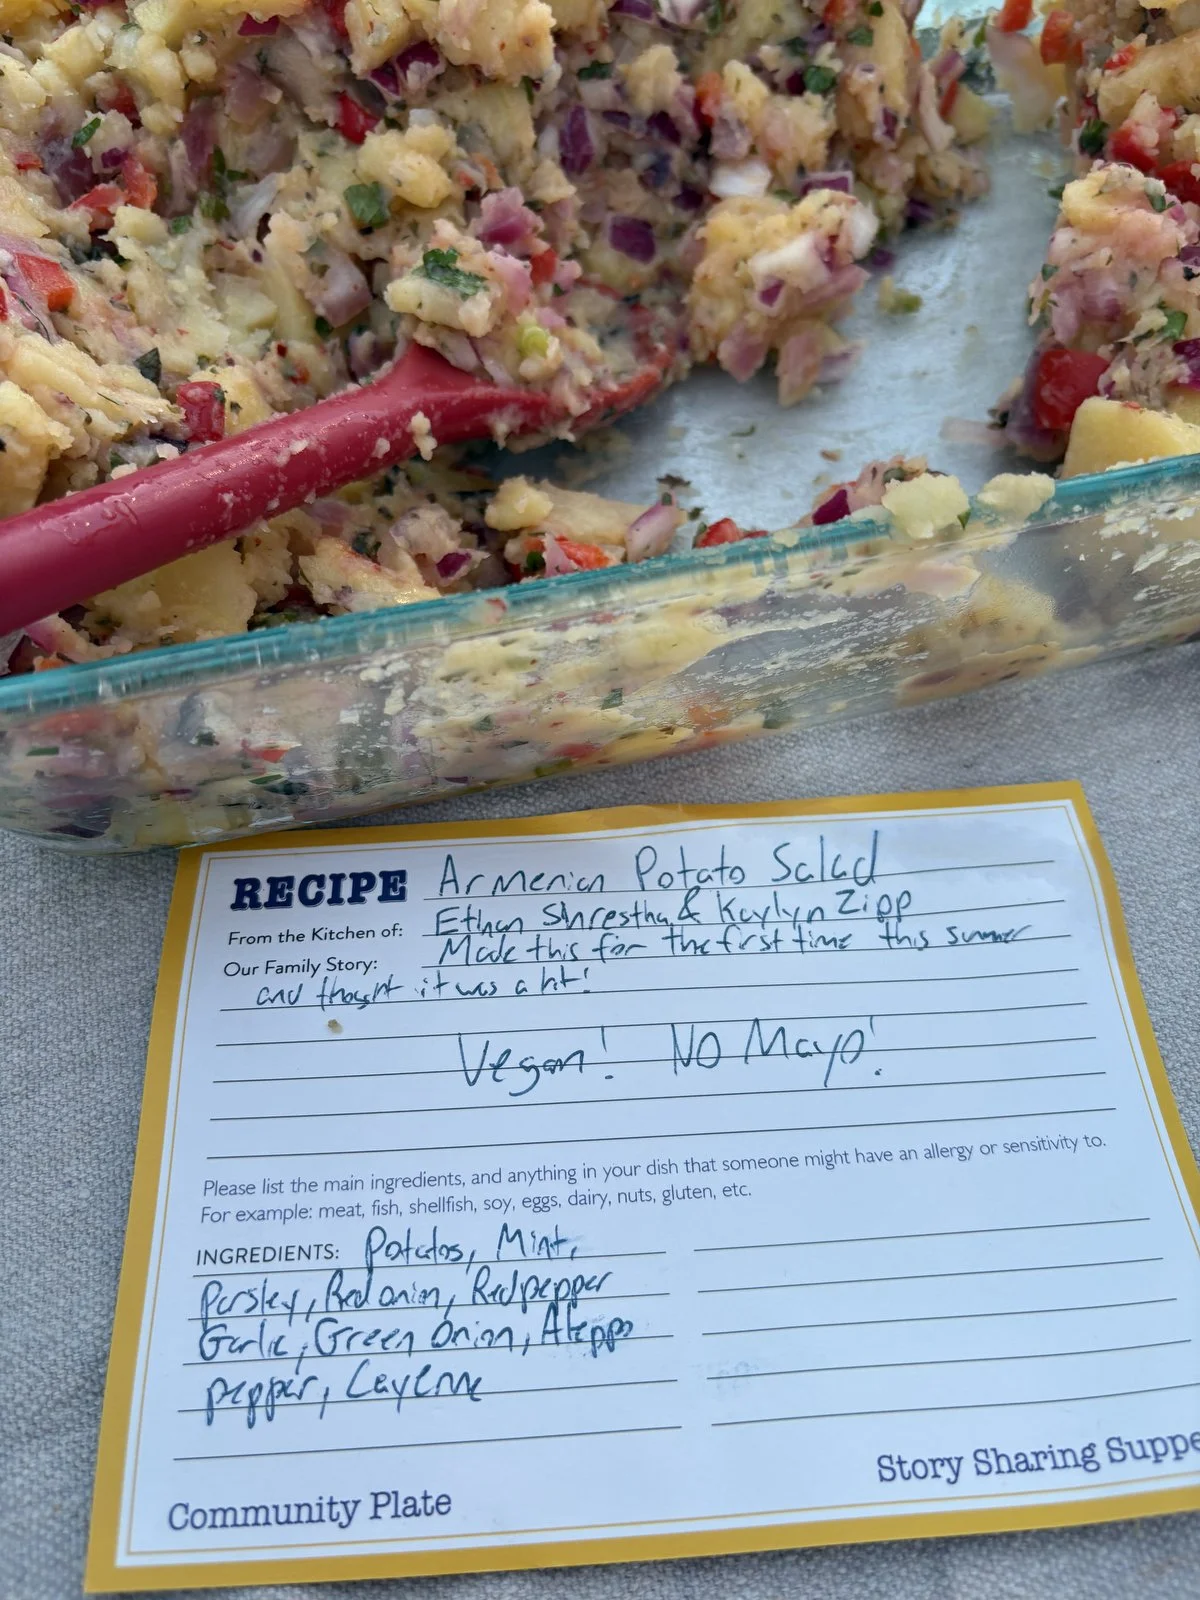 RECIPE Armenian Potato Salad
From the Kitchen of: Ethan Shrestha & Kaylyn Zipp
Our Family Story: Made this for the first time this summer
and thought it was a hit!
Vegan! No Mayo!
Please list the main ingredients, and anything in your dish that someone might have an allergy or sensitivity to.
For example: meat, fish, shellfish, soy, eggs, dairy, nuts, gluten, etc.
INGREDIENTS: Potatos, Mint,
Parsley, Red onion, Red pepper
Garlic, Green Onion, Aleppo
pepper, Cayenne
Story Sharing Suppe
Community Plate